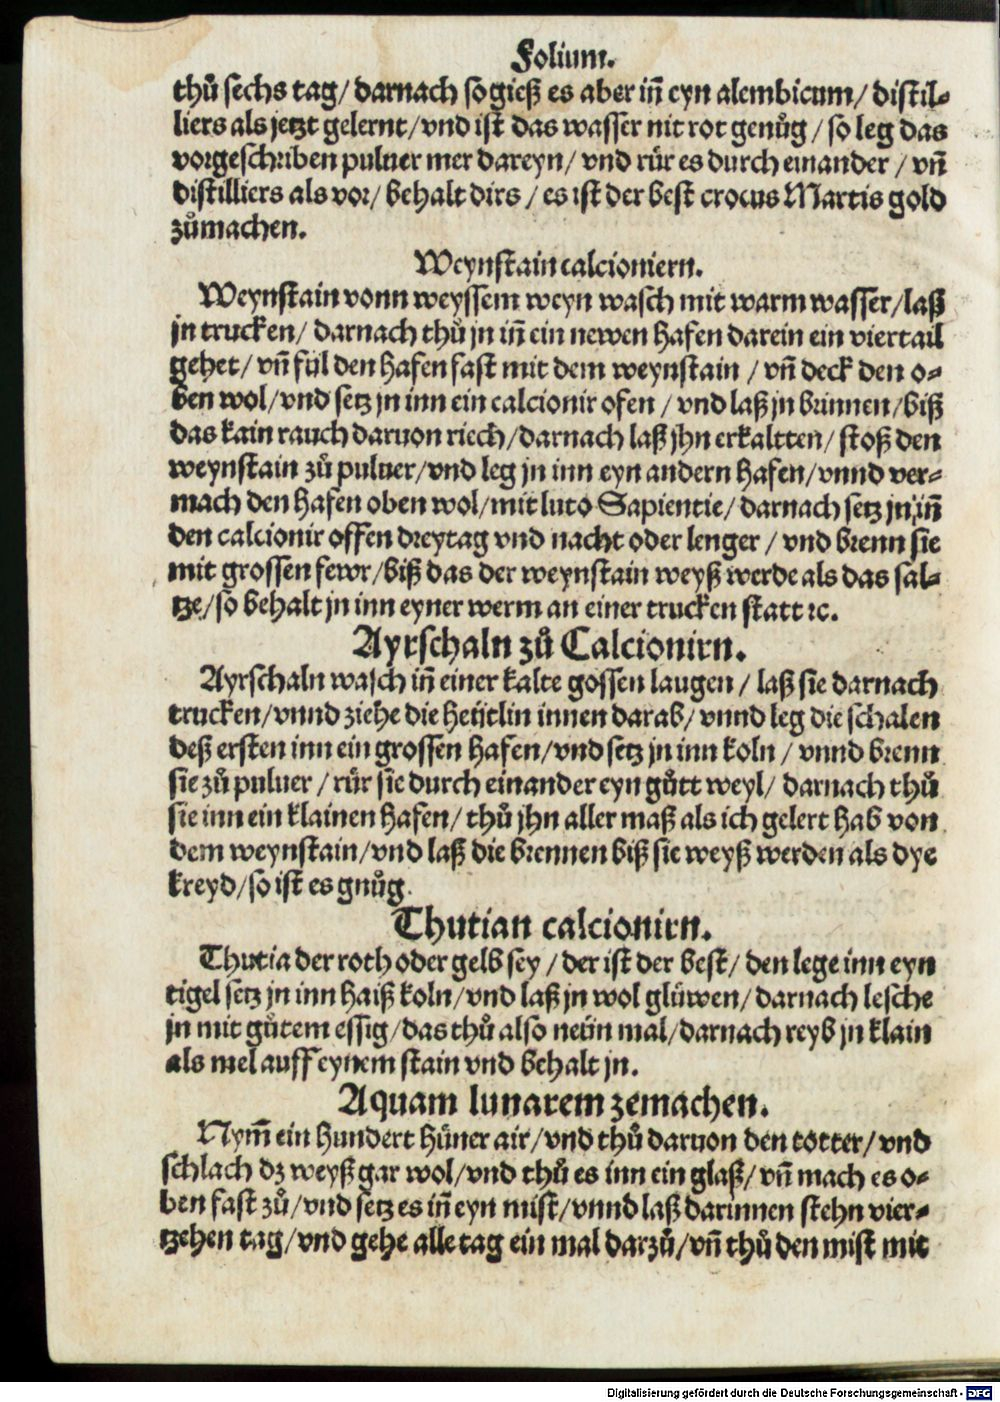 Folium.
thů sechs tag/ darnach so gieß es aber iñ eyn alembicum/ distil-
liers als jetzt gelernt/ vnd ist das wasser nit rot genůg / so leg das
vorgeschriben puluer mer dareyn/ vnd růr es durch einander / vñ
distilliers als vor/ behalt dirs / es ist der best crocus Martis gold
zůmachen.
Weynstain calcioniern.
Weynstain vonn weyssem weyn wasch mit warm wasser/ laß
jn trucken/ darnach thů jn iñ ein newen hafen darein ein viertail
gehet/ vñ fül den hafen fast mit dem weynstain / vñ deck den o-
ben wol/ vnd setz jn inn ein calcionir ofen / vnd laß jn brinnen/ biß
das kain rauch daruon riech/ darnach laß jhn erkaltten/ stoß den
weynstain zů puluer/ vnd leg jn inn eyn andern hafen/ vnnd ver-
mach den hafen oben wol/ mit luto Sapientie/ darnach setz jn iñ
den calcionir offen dreytag vnd nacht oder lenger / vnd brenn sie
mit grossen fewr/ biß das der weynstain weyß werde als das sal-
tze/ so behalt jn inn eyner werm an einer trucken statt ꝛc.
Ayrschaln zů Calcionirn.
Ayrschaln wasch iñ einer kalte gossen laugen / laß sie darnach
trucken/ vnnd ziehe die heütlin innen darab/ vnnd leg die schalen
deß ersten inn ein grossen hafen/ vnd setz jn inn koln / vnnd brenn
sie zů puluer / růr sie durch einander eyn gůtt weyl/ darnach thů
sie inn ein klainen hafen/ thů jhn aller maß als ich gelert hab von
dem weynstain/ vnd laß die brennen biß sie weyß werden als dye
kreyd/ so ist es gnůg.
Thutian calcionirn.
Thutia der roth oder gelb sey / der ist der best/ den lege inn eyn
tigel setz jn inn haiß koln/ vnd laß jn wol glüwen/ darnach lesche
jn mit gůtem essig/ das thů also neün mal/ darnach reyb jn klain
als mel auff eynem stain vnd behalt jn.
Aquam lunarem zemachen.
Nym̃ ein hundert hüner air/ vnd thů daruon den totter/ vnd
schlach dz weyß gar wol/ vnd thů es inn ein glaß/ vñ mach es o-
ben fast zů/ vnd setz es iñ eyn mist/ vnnd laß darinnen stehn vier-
tzehen tag/ vnd gehe alle tag ein mal darzů/ vñ thů den mist mit
Digitalisierung gefördert durch die Deutsche Forschungsgemeinschaft - DFG